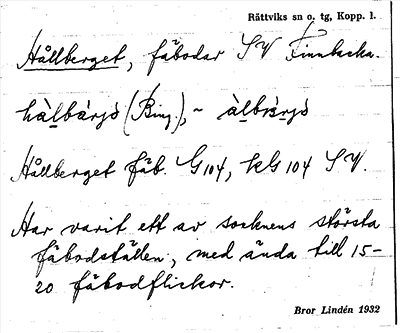 Rättviks sn o. tg, Kopp. l.
Hållberget, fäbodar SV Finnbacka.
hàlbærjó (Bing.), ~ àlbærjó
Hållberget fäb. G104, kG 104 SV.
Har varit ett av socknens största
fäbodställen, med ända till 15-
20 fäbodflickor.
Bror Lindén 1932